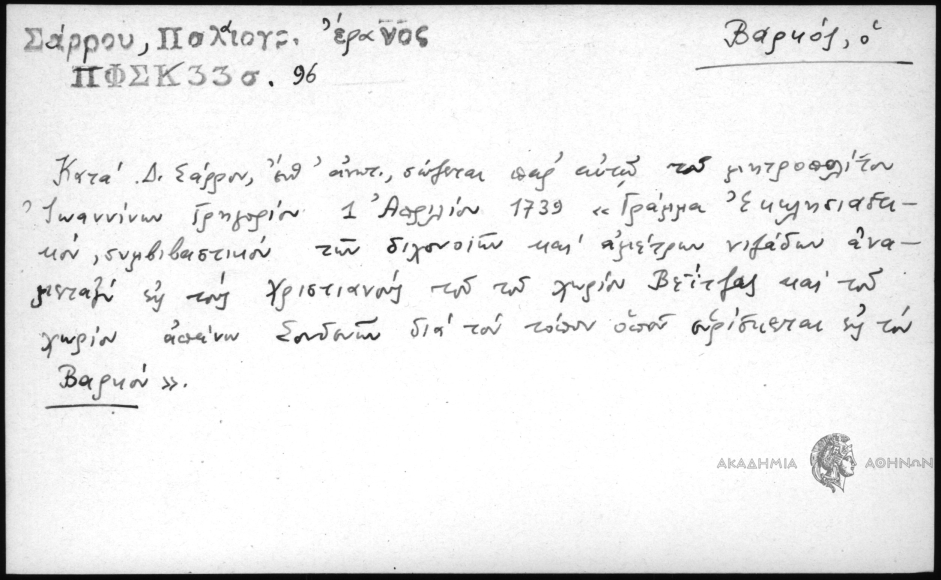 Σάρρου, Παλαιογρ. ἔρανος
ΠΦΣΚ33 σ. 96
Βαρκός, ὁ
Κατά Δ. Σάρρον, ἔνθ' ἀνωτ., σώζεται παρ' αὐτῷ τοῦ μητροπολίτου
Ἰωαννίνων Γρηγορίου 1 Ἀπριλίου 1739 «Γράμμα Ἐκκλησιαστι-
κόν, συμβιβαστικόν τῶν διχονοιῶν καί ἀμέτρων νιζάδων ἀνα-
μεταξύ εἰς τούς Χριστιανούς τοῦ τοῦ χωρίου Βεΐτζας καί τοῦ
χωρίου ἀπάνω Σουδενῶν διά τόν τόπον ὁποῦ εὑρίσκεται εἰς τόν
Βαρκόν».
ΑΚΑΔΗΜΙΑ ΑΘΗΝΩΝ